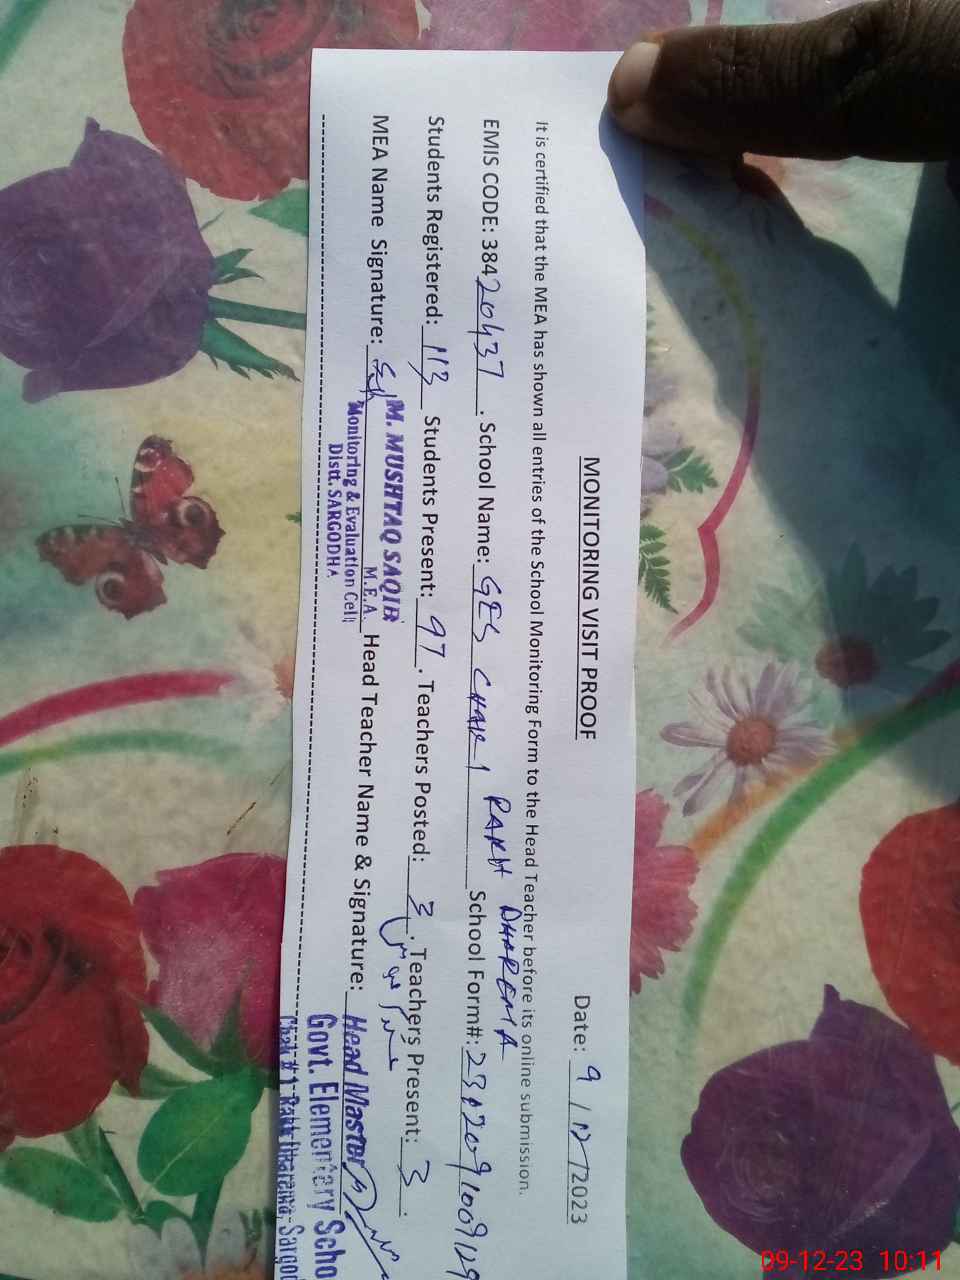 MONITORING VISIT PROOF
Date: 9/12/2023
It is certified that the MEA has shown all entries of the School Monitoring Form to the Head Teacher before its online submission.
EMIS CODE: 38420437. School Name: GES CHAK 1 RAKH DHAREMA School Form#: 23120910091129
Students Registered: 113 Students Present: 97. Teachers Posted: 3. Teachers Present: 3.
MEA Name Signature: M. MUSHTAQ SAQIB Head Teacher Name & Signature: Head Master
M.E.A.
Monitoring & Evaluation Cell
Distt. SARGODHA
Govt. Elementary Scho
Chak # 1-Rakh Dharema, Sargod
09-12-23 10:11